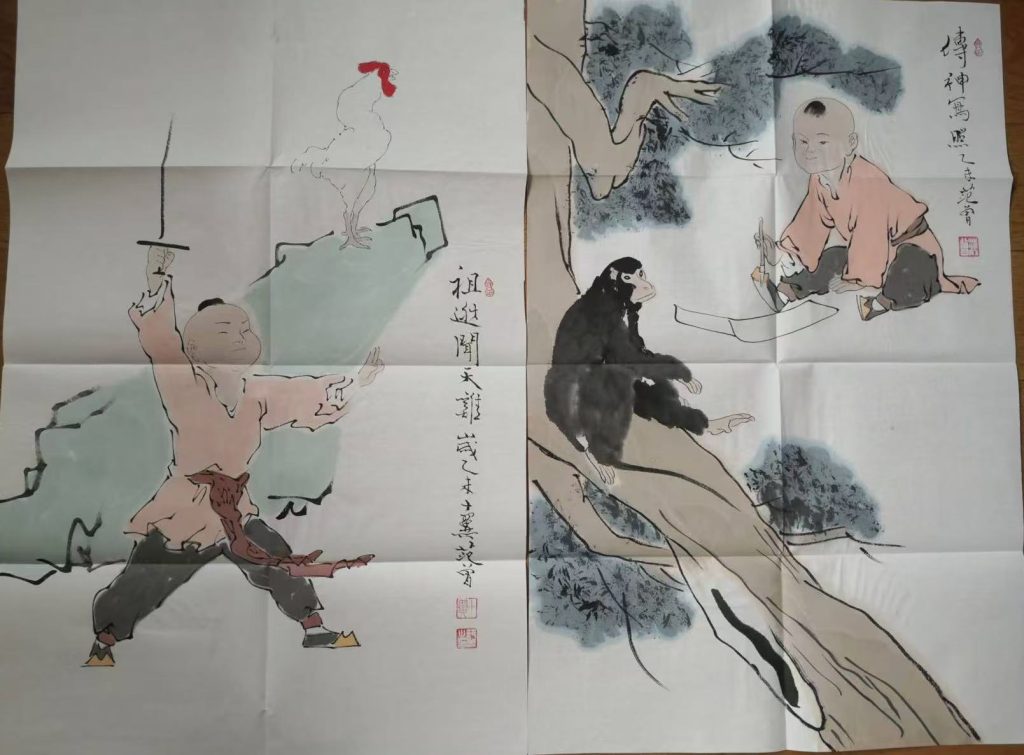 祖逖聞天雞歲乙未十翼范曾
傳神寫照乙未范曾